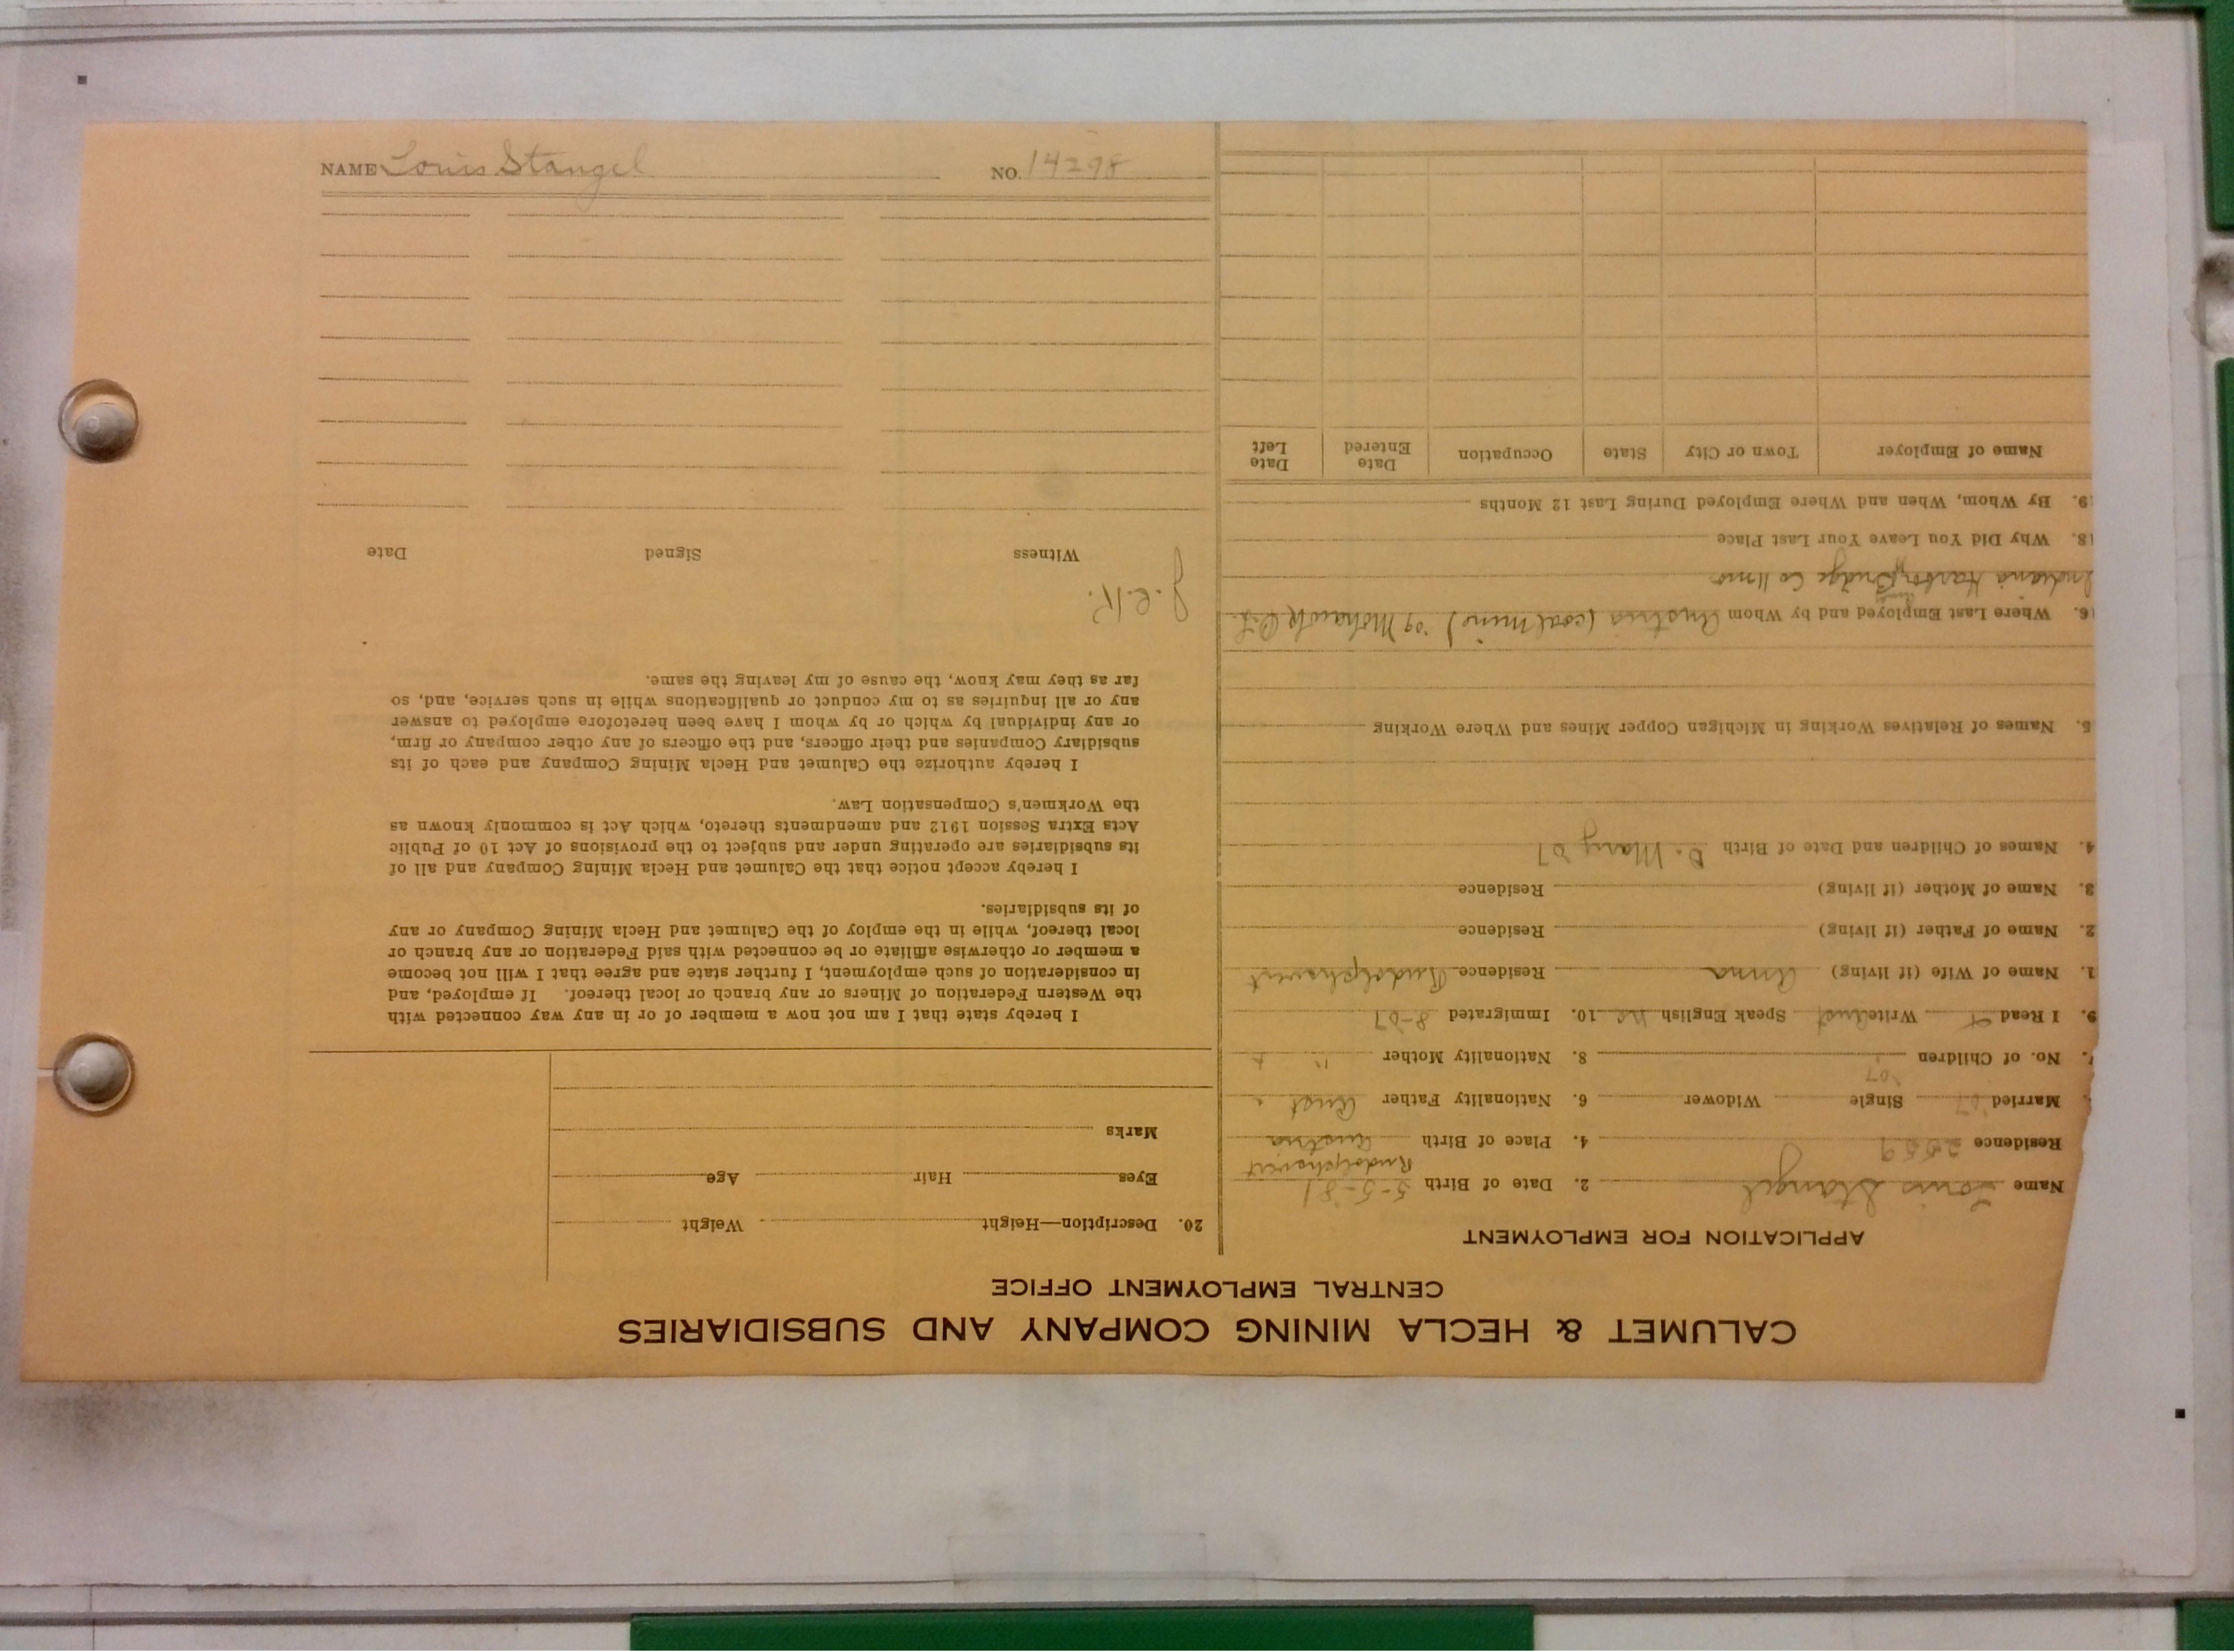 NAME Louis Stangel NO. 14298
CALUMET & HECLA MINING COMPANY AND SUBSIDIARIES
CENTRAL EMPLOYMENT OFFICE
APPLICATION FOR EMPLOYMENT
Name Louis Stangel 2. Date of Birth 5-5-81
Residence 2559 4. Place of Birth Austria
Married '07 Single Widower 6. Nationality Father Aust
'07
No. of Children 8. Nationality Mother "
9. I Read Write Aust Speak English no 10. Immigrated 8-07
1. Name of Wife (if living) Anna Residence
2. Name of Father (if living) Residence
3. Name of Mother (if living) Residence
4. Names of Children and Date of Birth D. Mary 07
5. Names of Relatives Working in Michigan Copper Mines and Where Working
6. Where Last Employed and by Whom Austria (coal mine) '09 Mohawk
Indiana Harbor Bridge Co
18. Why Did You Leave Your Last Place
19. By Whom, When and Where Employed During Last 12 Months
Name of Employer Town or City State Occupation Date Entered Date Left
20. Description—Height Weight
Eyes Hair Age
Marks
I hereby state that I am not now a member of or in any way connected with
the Western Federation of Miners or any branch or local thereof. If employed, and
in consideration of such employment, I further state and agree that I will not become
a member or otherwise affiliate or be connected with said Federation or any branch or
local thereof, while in the employ of the Calumet and Hecla Mining Company or any
of its subsidiaries.
I hereby accept notice that the Calumet and Hecla Mining Company and all of
its subsidiaries are operating under and subject to the provisions of Act 10 of Public
Acts Extra Session 1912 and amendments thereto, which Act is commonly known as
the Workmen's Compensation Law.
I hereby authorize the Calumet and Hecla Mining Company and each of its
subsidiary Companies and their officers, and the officers of any other company or firm,
or any individual by which or by whom I have been heretofore employed to answer
any or all inquiries as to my conduct or qualifications while in such service, and, so
far as they may know, the cause of my leaving the same.
J.C.K.
Witness Signed Date